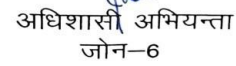 अधिशासी अभियन्ता
जोन–6